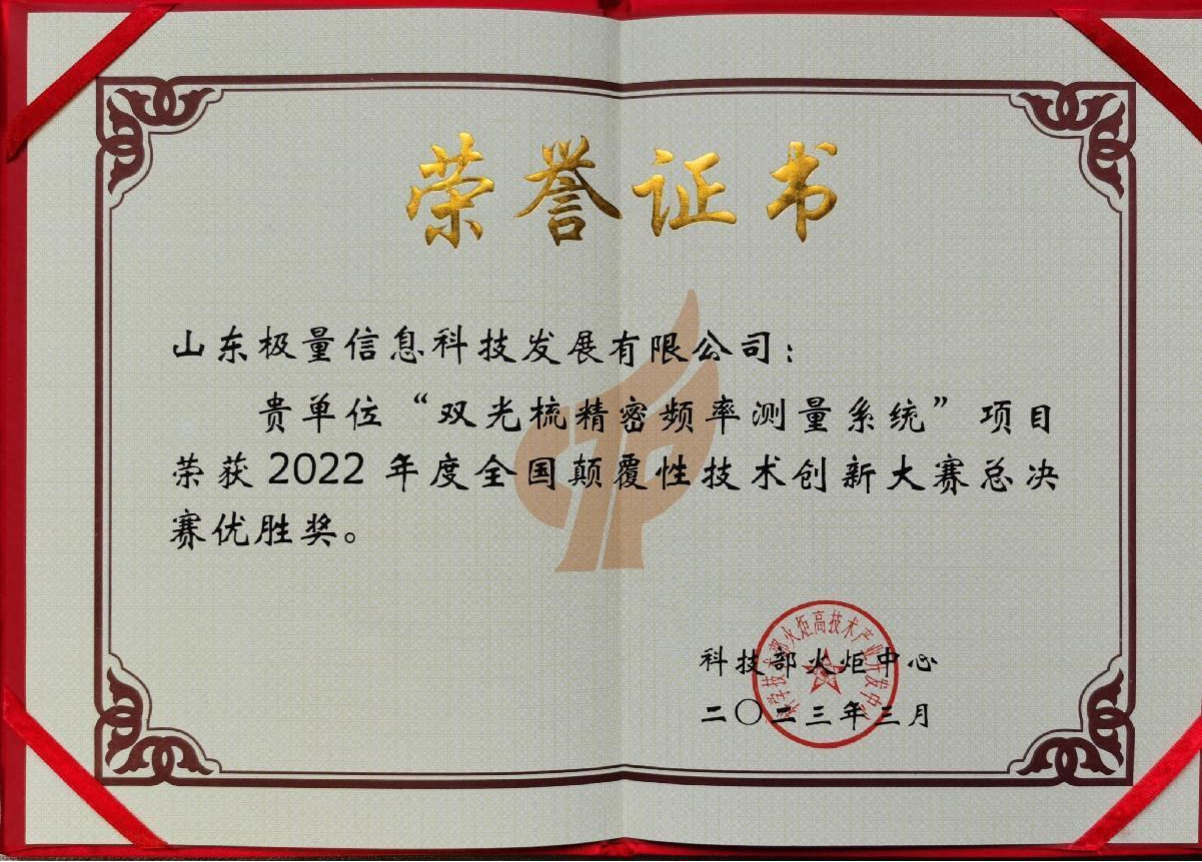 荣誉证书
山东极量信息科技发展有限公司：
贵单位“双光梳精密频率测量系统”项目
荣获2022年度全国颠覆性技术创新大赛总决
赛优胜奖。
科技部火炬中心
二〇二三年三月
科学技术部火炬高技术产业开发中心